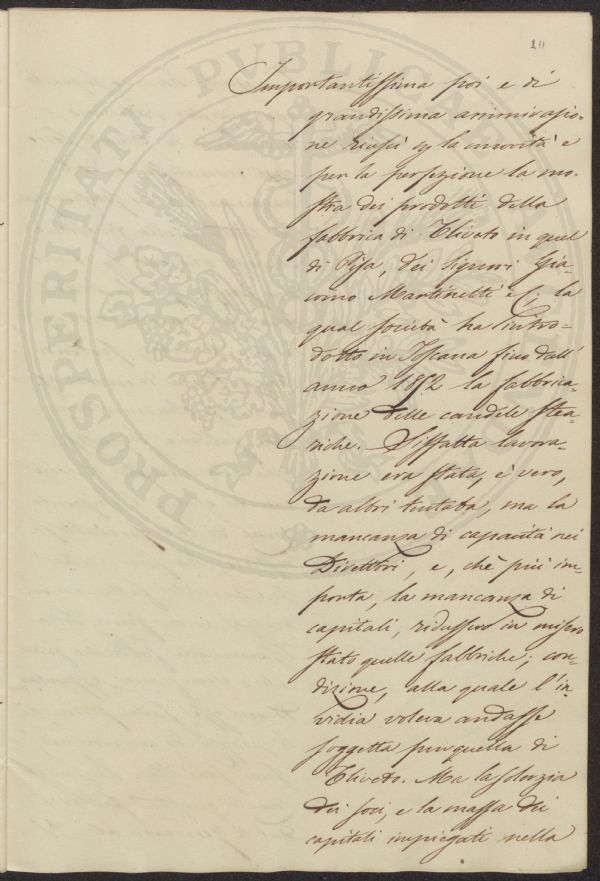 10
PROSPERITATI PVBLICAE
Importantissima poi e di
grandissima ammirazio-
ne riuscì per la novità e
per la perfezione la mo-
stra dei prodotti della
fabbrica di Uliveto in quel
di Pisa, dei Signori Gia-
como Martinetti e C.i la
qual società ha intro-
dotto in Toscana fino dall'
anno 1852 la fabbrica-
zione delle candele stea-
riche. Siffatta lavora-
zione era stata, è vero,
da altri tentata, ma la
mancanza di capacità nei
Direttori, e, chè più im-
porta, la mancanza di
capitali, ridussero in misero
stato quelle fabbriche; con-
dizione, alla quale l'in-
vidia voleva andasse
soggetta pur quella di
Uliveto. Ma la solerzia
dei soci, e la massa dei
capitali impiegati nella